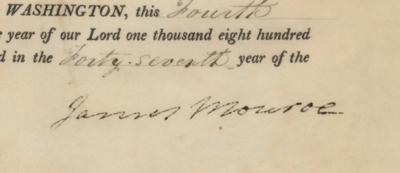 WASHINGTON, this Fourth
year of our Lord one thousand eight hundred
in the Forty-seventh year of the
James Monroe